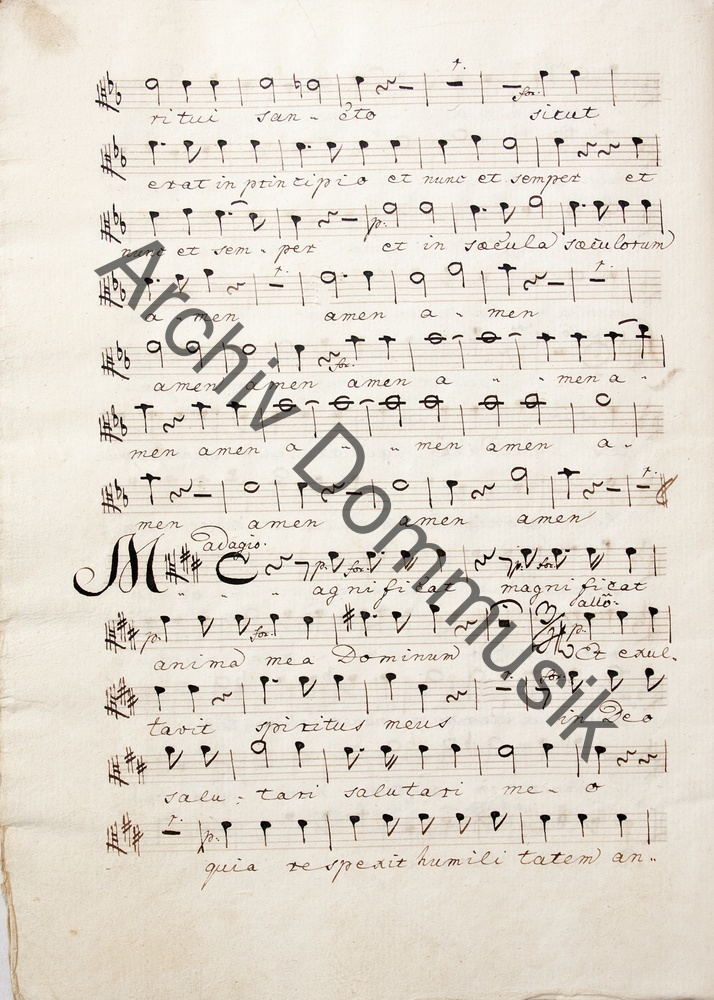 1.
for.
ritui san - cto sicut
erat in principio et nunc et semper et
p.
nunc et sem - per et in sæcula sæculorum
1. 1.
a - men amen a - men
for.
amen amen amen a " " men a -
men amen a - " men amen a -
1.
men amen amen amen
adagio.
p. for. p. for.
M " " " agnificat magnificat
p. for. 1. 3 allo: p.
anima mea Dominum Et exul -
1. for.
tavit spiritus meus in Deo
salu - tari salutari me - o
1. p.
quia respexit humili tatem an -
Archiv Dommusik